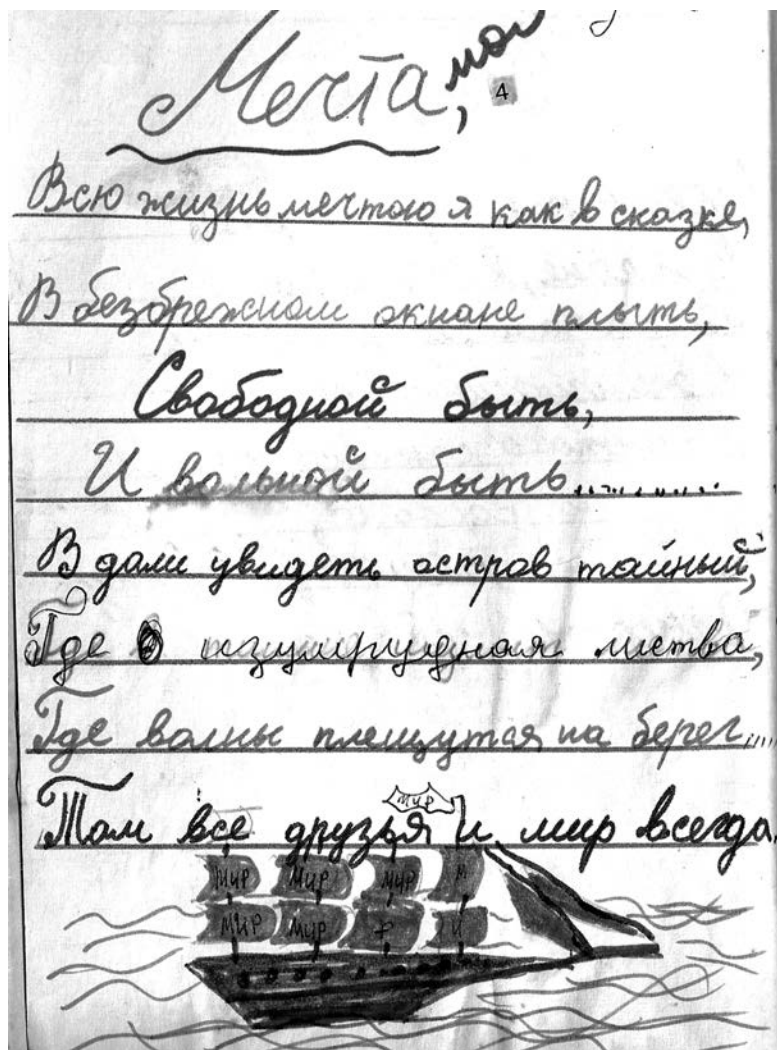 Мечта, моя
4
Всю жизнь мечтою я как в сказке,
В безбрежном окиане плыть,
Свободной быть,
И вольной быть............
В дали увидеть остров тайный,
Где изумрудная листва,
Где волны плещутся на берег....
Там все друзья и мир всегда.
мир
Мир Мир мир м
мир мир р и